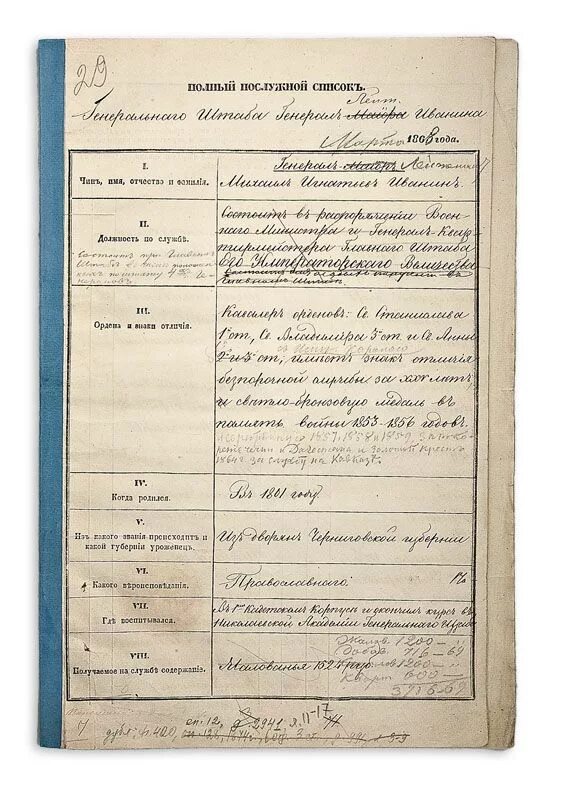 29
ПОЛНЫЙ ПОСЛУЖНОЙ СПИСОКЪ.
Лейт.
Генеральнаго Штаба Генералъ Маіора Иванина
Марта 1868 года.
I.
Чинъ, имя, отчество и фамилія.
Генералъ-Маіоръ Лейтенантъ
Михаилъ Игнатьевъ Иванинъ.
II.
Должность по службѣ.
Состоитъ при Главномъ
Состоитъ въ распоряженіи Воен-
наго Министра и Генералъ-Квар-
тирмейстера Главнаго Штаба
Его Императорскаго Величества
III.
Ордена и знаки отличія.
Кавалеръ орденовъ: Св. Станислава
1й ст., Св. Владиміра 3й ст. и Св. Анны
2й и 3й ст.; имѣетъ знакъ отличія
безпорочной службы за XXV лѣтъ
и свѣтло-бронзовую медаль въ
память войны 1853-1856 годовъ.
1857, 1858 и 1859 за
Чечни и Дагестана и золотой крестъ
1864 г. за службу на Кавказѣ.
IV.
Когда родился.
Въ 1801 году
V.
Изъ какого званія происходитъ и
какой губерніи уроженецъ.
Изъ дворянъ Черниговской губерніи
VI.
Какого вѣроисповѣданія.
Православнаго.
VII.
Гдѣ воспитывался.
Въ 1мъ Кадетскомъ Корпусѣ и окончилъ курсъ въ
Николаевской Академіи Генеральнаго Штаба
VIII.
Получаемое на службѣ содержаніе.
Жалованья 1524 руб.
Жалов 1200 —
Добав. 716-69
1200 —
Кварт 600 —
3716 69
оп. 12, д 2941 л. 11-17
дубл: ф. 400,